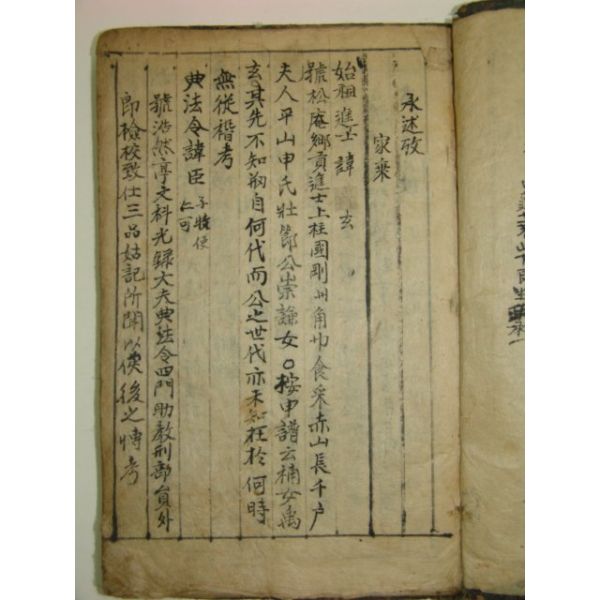 永述攷
家乘
始祖進士 諱 玄
號松庵鄕貢進士上柱國剛州角巾食采赤山長千户
夫人平山申氏壯節公崇謙女○按申譜云楠女禹
玄其先不知刱自何代而公之世代亦未知在於何時
無從稽考
典法令諱臣 子特仁 便可
號浩然亭文科光祿大夫典法令四門助敎刑部員外
郎檢校致仕三品姑記所聞以俟後之博考